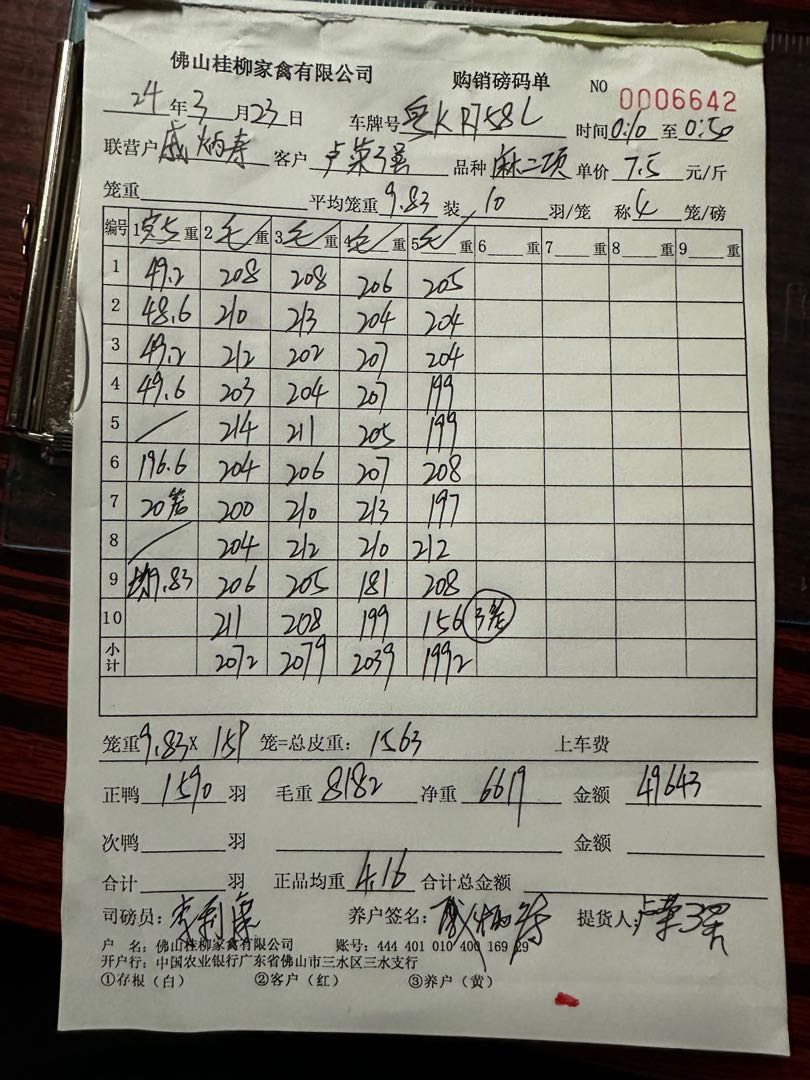 佛山桂柳家禽有限公司 购销磅码单 NO 0006642
24年3月23日 车牌号 粤K R758L 时间0:10至0:50
联营户 炳寿 客户 卢荣强 品种 麻二项 单价 7.5 元/斤
笼重 平均笼重 9.83 装 10 羽/笼 称 4 笼/磅
编号 1 重 2 毛 重 3 毛 重 4 毛 重 5 毛 重 6 重 7 重 8 重 9 重
1 49.2 208 208 206 205
2 48.6 210 213 204 204
3 49.2 212 202 207 204
4 49.6 203 204 207 199
5 / 214 211 205 199
6 196.6 204 206 207 208
7 20笼 200 210 213 197
8 / 204 212 210 212
9 均9.83 206 205 181 208
10 211 208 199 156 3笼
小计 2072 2079 2039 1992
笼重 9.83 X 159 笼=总皮重: 1563 上车费
正鸭 1590 羽 毛重 8182 净重 6619 金额 49643
次鸭 羽 金额
合计 羽 正品均重 4.16 合计总金额
司磅员: 养户签名: 提货人: 卢荣强
户 名: 佛山桂柳家禽有限公司 账号: 444 401 010 400 169 29
开户行: 中国农业银行广东省佛山市三水区三水支行
①存根(白) ②客户(红) ③养户(黄)